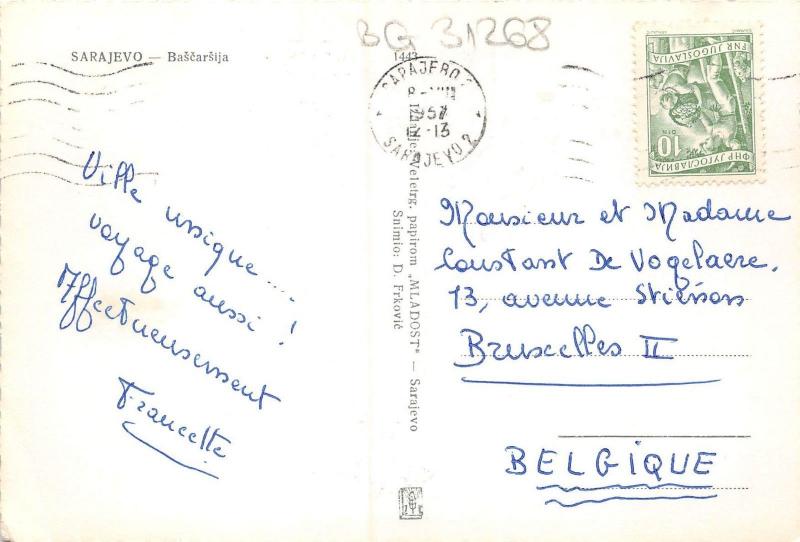 BG 31268
SARAJEVO — Baščaršija
1443
SARAJEVO 2
1957
12-13
FNR JUGOSLAVIJA
ФНР ЈУГОСЛАВИЈА
10
DIN
Ville unique....
voyage aussi!
Affectueusement
Francette
Izdanje: Veletrg. papirom „MLADOST" — Sarajevo
Snimio: D. Frković
Monsieur et Madame
Constant De Vogelaere.
13, avenue
Bruxelles II
BELGIQUE